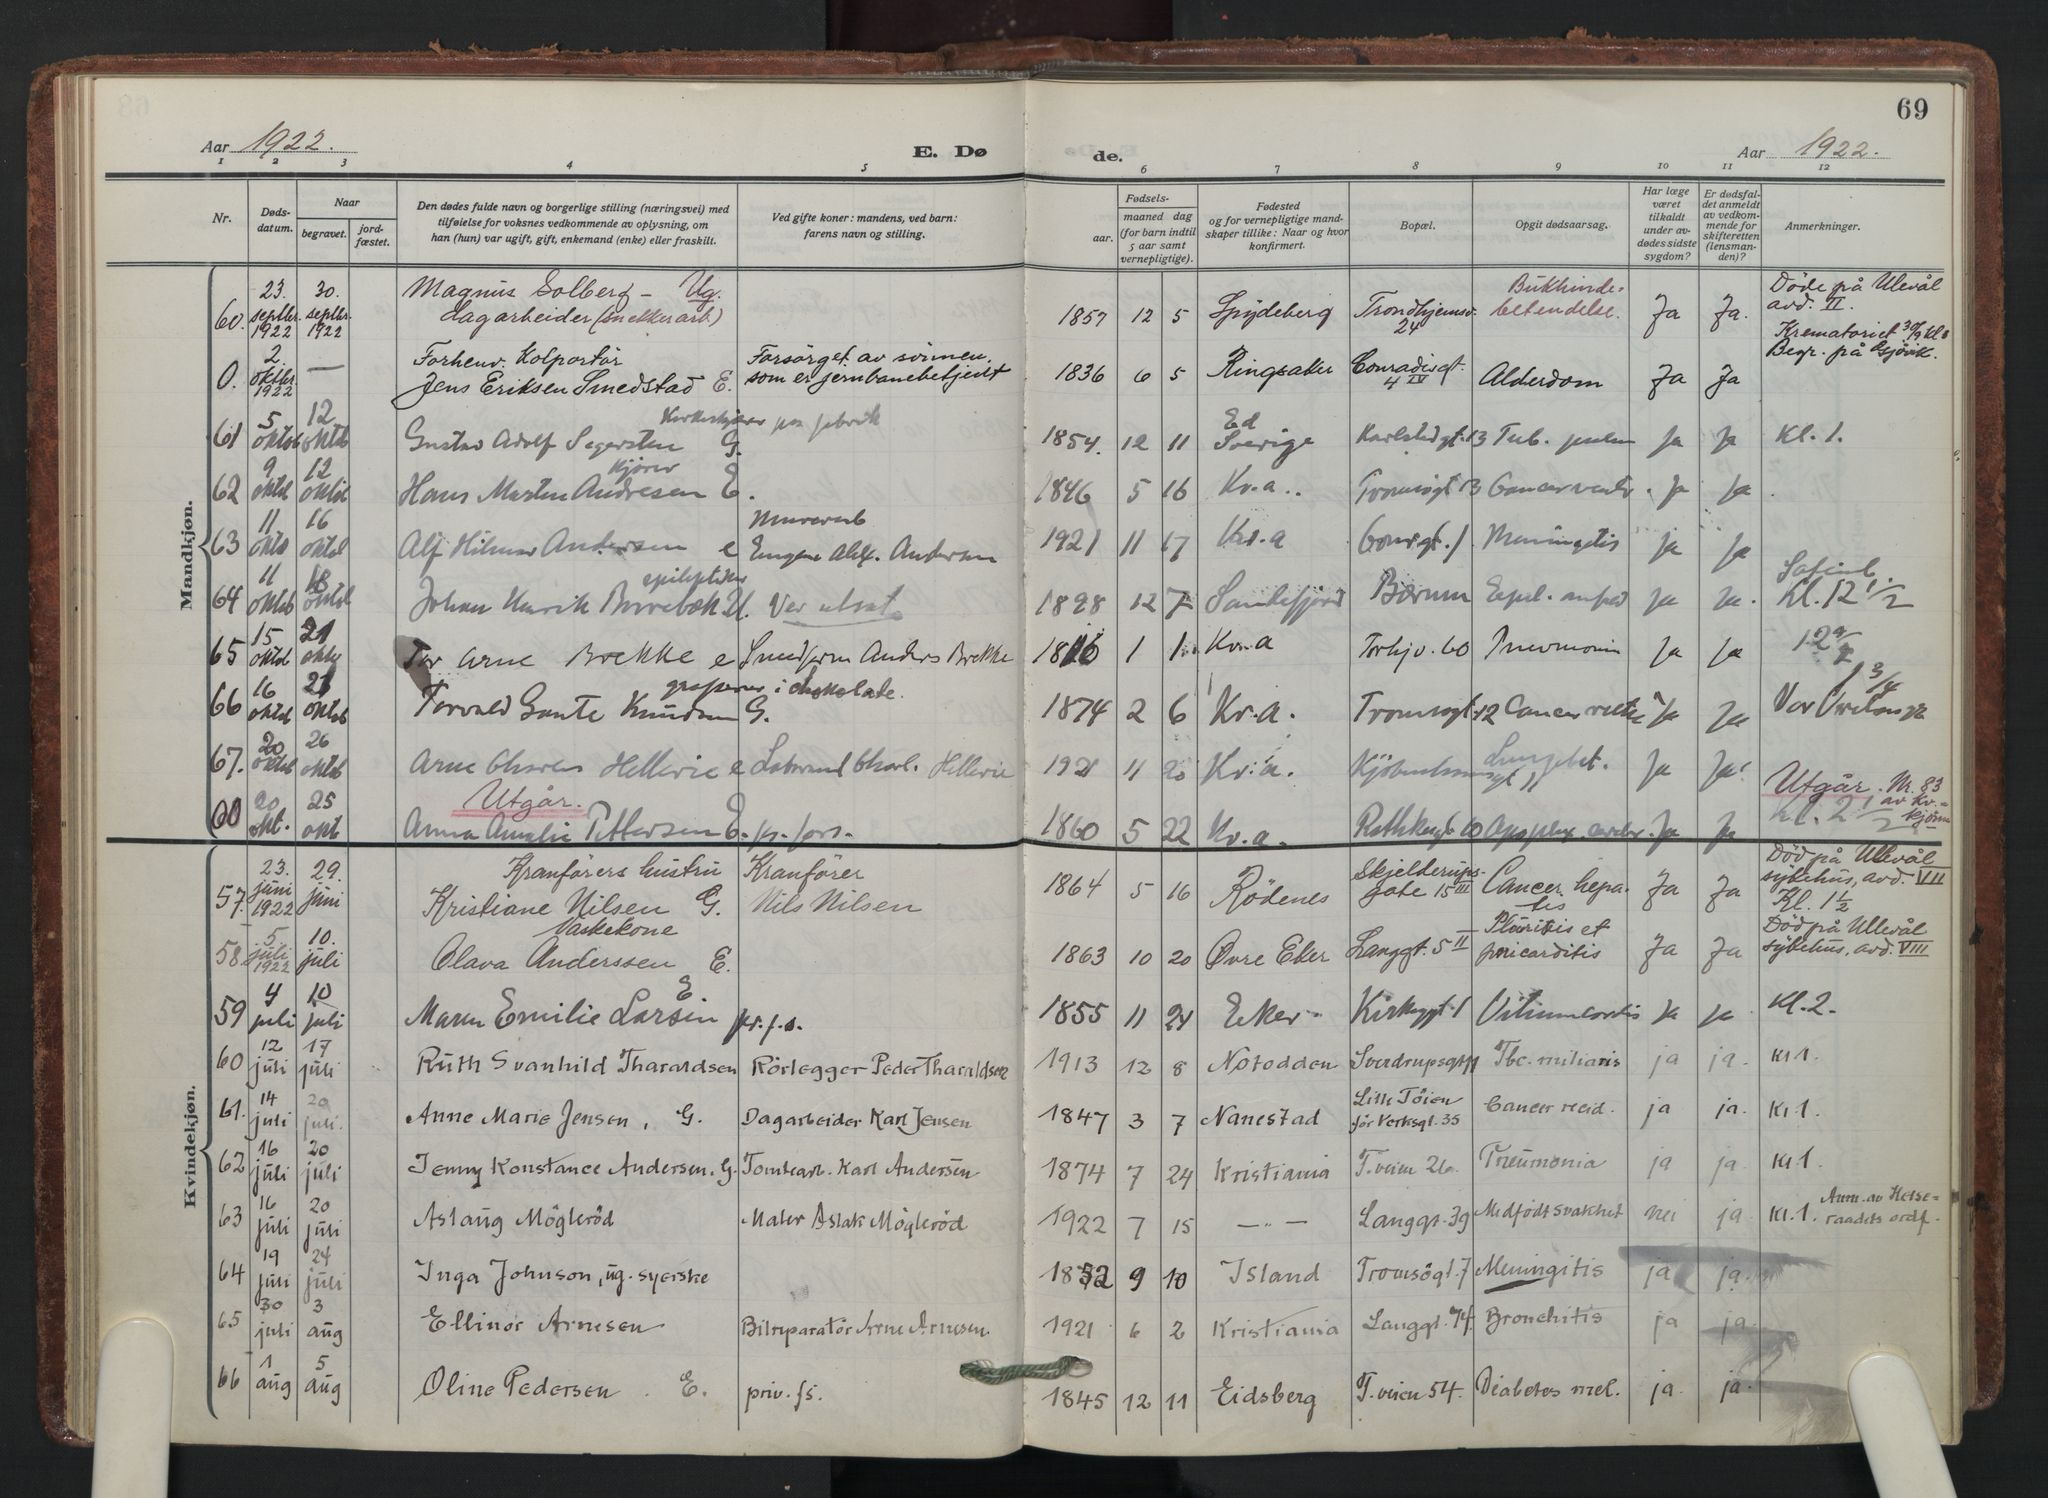 69
Aar 1922.
E. Dø
de.
Aar 1922.
1 2 3 4 5 6 7 8 9 10 11 12
Nr.
Døds-
datum.
Naar
begravet.
jord-
fæstet.
Den dødes fulde navn og borgerlige stilling (næringsvei) med
tilføielse for voksnes vedkommende av oplysning, om
han (hun) var ugift, gift, enkemand (enke) eller fraskilt.
Ved gifte koner: mandens, ved barn:
farens navn og stilling.
Fødsels-
aar.
maaned dag
(for barn indtil
5 aar samt
vernepligtige).
Fødested
og for vernepligtige mand-
skaper tillike: Naar og hvor
konfirmert.
Bopæl.
Opgit dødsaarsag.
Har læge
været
tilkaldt
under av-
dødes sidste
sygdom?
Er dødsfal-
det anmeldt
av vedkom-
mende for
skifteretten
(lensman-
den)?
Anmerkninger.
Mandkjøn.
60. 23. septbr. 1922 30. septbr. 1922 Magnus Solberg - Ug.
dagarbeider (snekkerarb) 1857 12 5 Spydeberg Trondhjemsv. 24 Bukhinde-
betendelse. Ja Ja. Döde på Ulevål
avd. II.
Krematoriet 30/9 kl
0. 2. oktbr. 1922 — Forhenv. Kolportör
Jens Eriksen Smedstad E. Forsörget av sönnen,
som er jernbanebetjent 1836 6 5 Ringsaker Conradisgt. 4 IV Alderdom Ja Ja Begr. på Gjövik.
61 5 oktob 12 oktb Gustav Adolf Segersten G. 1854. 12 11 Ed
Sverige Karlstadgt. 13 Tub. pulm Ja Ja Kl. 1.
62 9 oktob 12 oktob Kjörer
Hans Martin Andresen E. 1846 5 16 Kr.a.. Tromsögt 13 Cancer ventr. Ja Ja
63 11 oktb 16 oktob Alf Hilmar Andersen e Murerarb
Eugen Alex. Andersen 1921 11 17 Kr.a Meningitis ja ja
64 11 oktob 18 oktob epileptiker
Johan Henrik U. 1898 12 7 Sandefjord Bærum Epel. Ja Ja. Kl. 12 1/2
65 15 oktob 21 oktb Tor Arne Brekke e Smedform Anders Brekke 1 1 Kr.a Torhjv. 60 Pneumoni Ja Ja
66 16 oktob 21 oktob i chokolade.
Torvald Knudsen G. 1874 2 6 Kr.a. Tromsögt 12 Cancer recti Ja Ja 1 3/4
67. 20 oktob 26 oktob Arne Charles Hellerie e Charl. Hellerie 1921 11 20 Kr.a. Kjöbenhavnsgt 11 Lungebet. Ja Ja
00 20 okt. 25 okt Utgår.
Anna Amalie Pettersen E. pr. fors. 1860 5 22 Kr.a. Rathkesgt 10 Apoplex. cerebr. Ja Ja Utgår. Nr. 83
av Kv.-
kjönn
Kl. 2 1/2
Kvindekjøn.
57. 23. juni 1922 29. juni Kranförers hustru
Kristiane Nilsen G. Kranförer
Nils Nilsen 1864 5 16 Rödenes Skjelderups-
gate 15 III Cancer hepa-
tis Ja Ja Död på Ullevål
sykehus, avd. VII
Kl. 1 1/2
58. 5. juli 1922 10. juli Vaskekone
Olava Anderssen E. 1863 10 20 Øvre Eker Langgt. 5 II Pluritis et
pericarditis Ja Ja Död på Ullevål
sykehus, avd. VIII
59 4 juli 10 juli Maren Emilie Larsen E pr. f. s. 1855 11 24 Eker Kirkegt. 1 Vitium cordis Ja Ja Kl. 2.
60 12 juli 17 juli Ruth Svanhild Tharardsen Rörlegger Peder Tharaldsen 1913 12 8 Notodden Sverdrupsgt 11 Tbc. miliaris ja ja. Kl 1.
61. 14 juli 20 juli. Anne Marie Jensen, G. Dagarbeider Karl Jensen 1847 3 7 Nanestad Lille Töien
för Verksgt. 35 Cancer recid. ja ja. Kl 1.
62 16 juli 20 juli Jenny Konstance Andersen. G. Tomtearb. Karl Andersen 1874 7 24 Kristiania T. veien 26. Pneumonia ja ja. Kl 1.
63 16 juli 20 juli Aslaug Mögleröd Maler Aslak Mögleröd 1922 7 15 — „ — Langgt. 39 Medfödt svakhet nei ja. Kl. 1. Anm. av Helse-
raadets ordf.
64 19 juli 24 juli Inga Johnson, ug. syerske 1852 9 10 Island Tromsögt. 7 Meningitis ja ja.
65 30 juli 3 aug Ellinor Arnesen Bilreparatör Arne Arnesen. 1921 6 2 Kristiania Langgt. 74. Bronchitis ja ja.
66 1 aug 5 aug Oline Pedersen. E. priv. fs. 1845 12 11 Eidsberg T. veien 54. Diabetes mel. ja. ja.